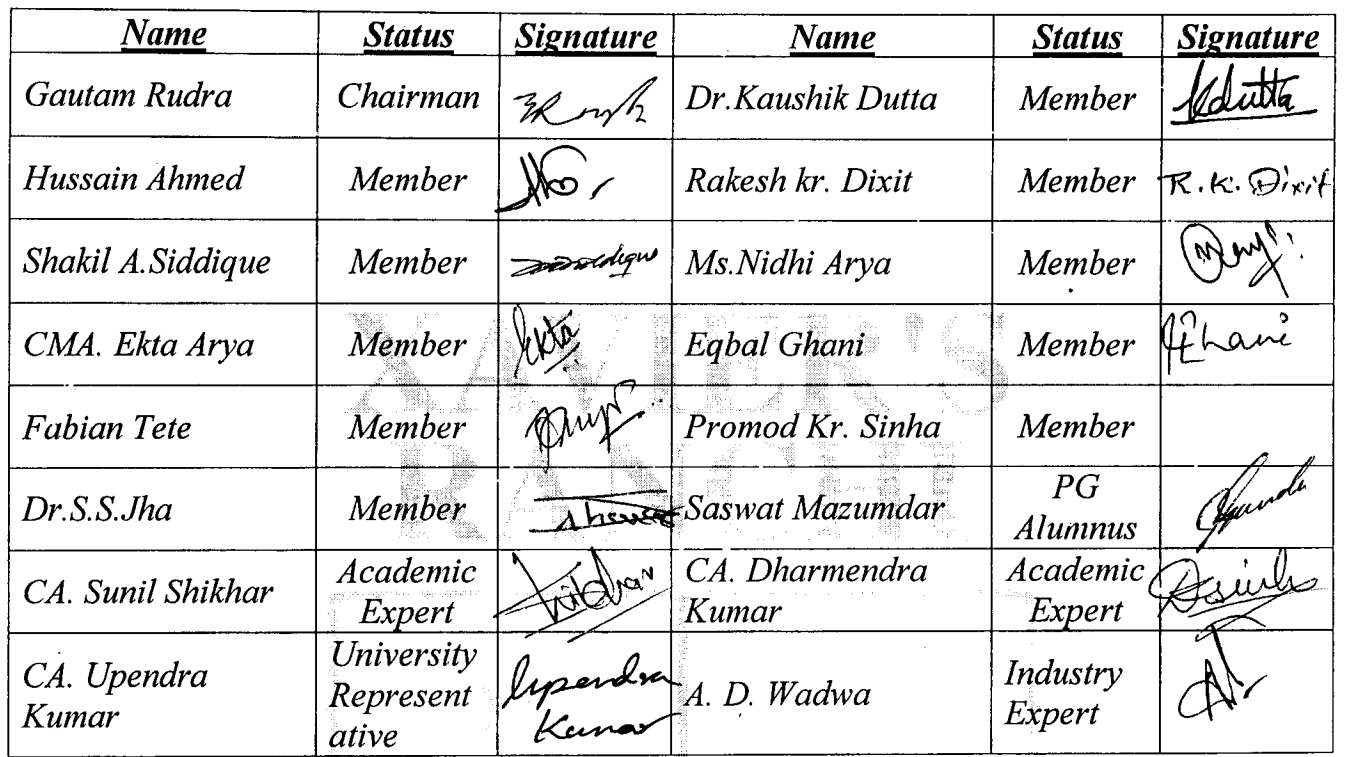 Name Status Signature Name Status Signature
Gautam Rudra Chairman Dr.Kaushik Dutta Member Kdutta
Hussain Ahmed Member Rakesh kr. Dixit Member R.K. Dixit
Shakil A.Siddique Member Ms.Nidhi Arya Member
CMA. Ekta Arya Member Ekta Eqbal Ghani Member
Fabian Tete Member Promod Kr. Sinha Member
Dr.S.S.Jha Member Saswat Mazumdar PG
Alumnus
CA. Sunil Shikhar Academic
Expert
CA. Dharmendra
Kumar
Academic
Expert
CA. Upendra
Kumar
University
Represent
ative
Upendra
Kumar
A. D. Wadwa Industry
Expert
XAVIER'S
RANCHI